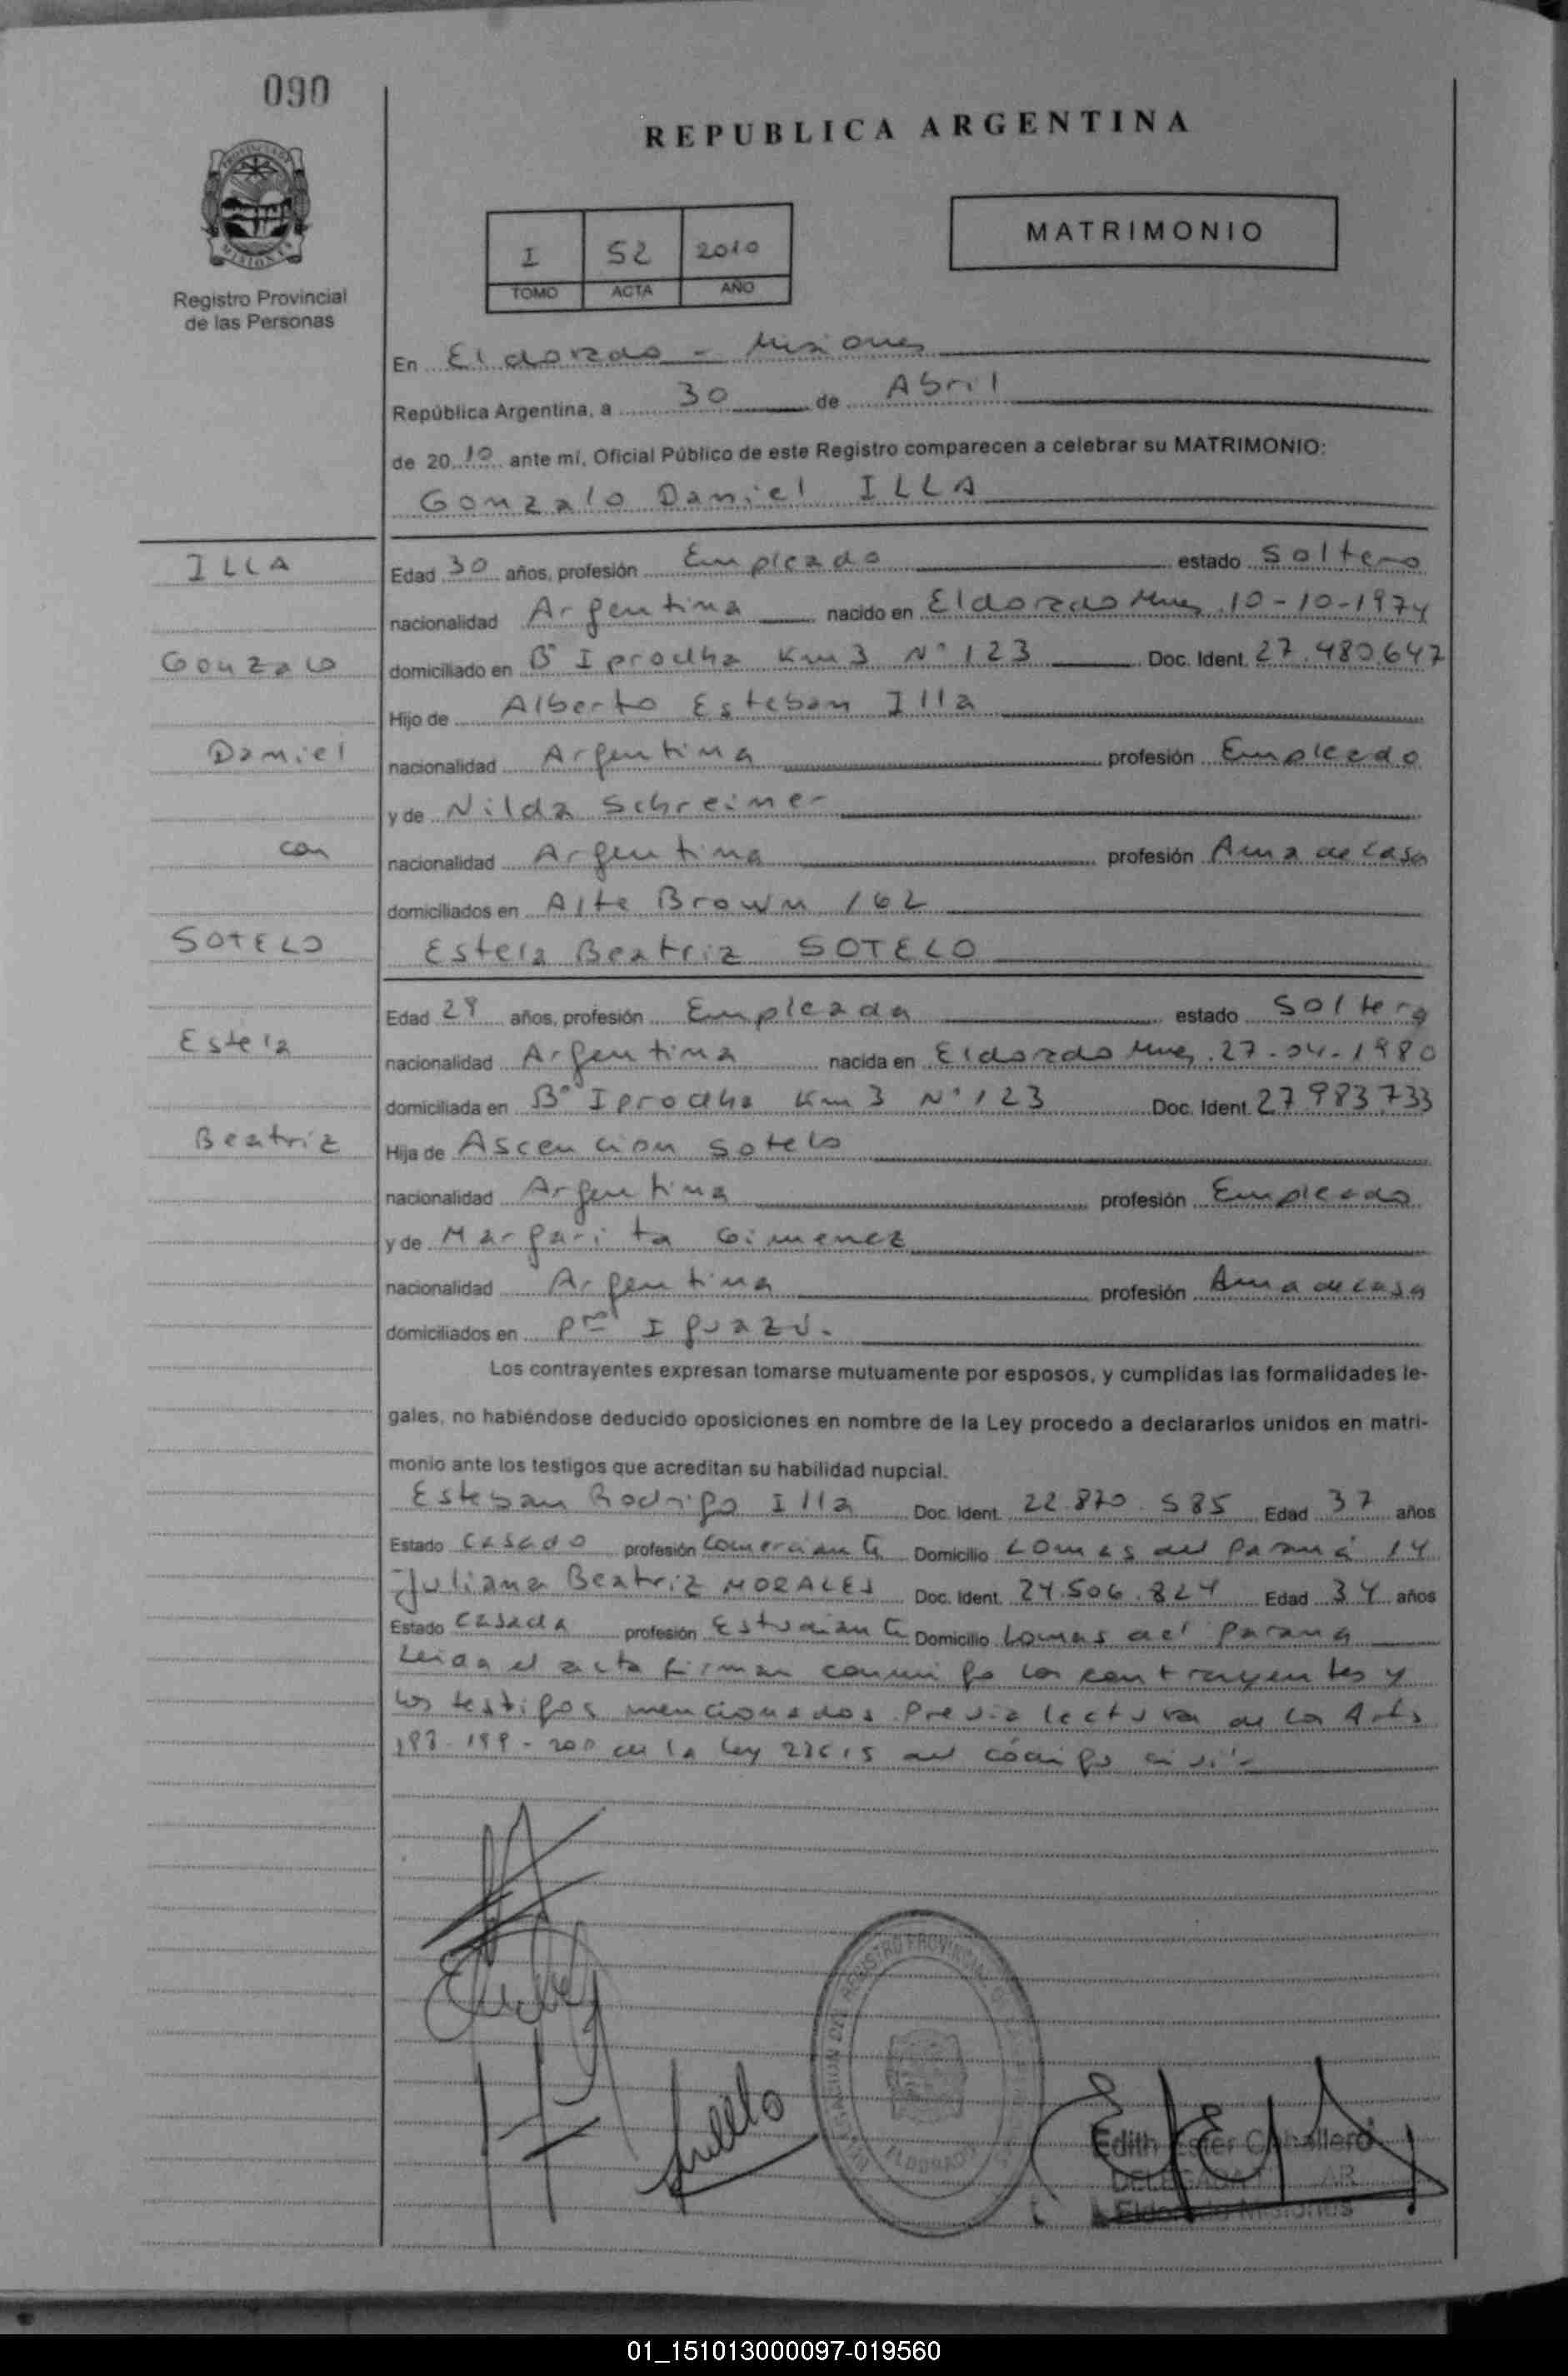 090
REPUBLICA ARGENTINA
MATRIMONIO
PROVINCIA DE MISIONES
Registro Provincial
de las Personas
I 52 2010
TOMO ACTA AÑO
En Eldorado - Misiones
República Argentina, a 30 de Abril
de 2010 ante mí, Oficial Público de este Registro comparecen a celebrar su MATRIMONIO:
Gonzalo Daniel ILLA
ILLA
Edad 30 años, profesión Empleado estado Soltero
nacionalidad Argentina nacido en Eldorado Mnes 10-10-1974
Gonzalo
domiciliado en B° Iprodha Km 3 N° 123 Doc. Ident. 27.480.647
Hijo de Alberto Esteban Illa
Daniel
nacionalidad Argentina profesión Empleado
y de Nilda Schreiner
con
nacionalidad Argentina profesión Ama de casa
domiciliados en Alte Brown 162
SOTELO
Estela Beatriz SOTELO
Edad 29 años, profesión Empleada estado Soltera
Estela
nacionalidad Argentina nacida en Eldorado Mnes. 27-04-1980
domiciliada en B° Iprodha Km 3 N° 123 Doc. Ident. 27.983.733
Beatriz
Hija de Ascencion Sotelo
nacionalidad Argentina profesión Empleado
y de Margarita Gimenez
nacionalidad Argentina profesión Ama de casa
domiciliados en Pto Iguazú.
Los contrayentes expresan tomarse mutuamente por esposos, y cumplidas las formalidades le-
gales, no habiéndose deducido oposiciones en nombre de la Ley procedo a declararlos unidos en matri-
monio ante los testigos que acreditan su habilidad nupcial.
Esteban Rodrigo Illa Doc. Ident. 22.870.585 Edad 37 años
Estado Casado profesión Comerciante Domicilio Lomas del Paraná 14
Juliana Beatriz MORALES Doc. Ident. 24.506.824 Edad 34 años
Estado Casada profesión Estudiante Domicilio Lomas del Parana
Leida el acta firman conmigo los contrayentes y
los testigos mencionados. Previa lectura de los Arts
198-199-200 de la Ley 23515 del código civil
REGISTRO PROVINCIAL
ELDORADO
Edith Ester Caballero
Eldorado Misiones
01_151013000097-019560